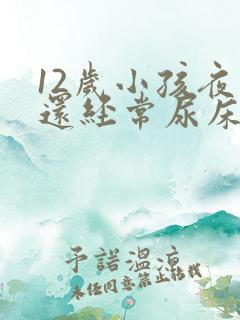 12歲小孩夜
還經常尿床
予諾溫涼
未經同意禁止轉載